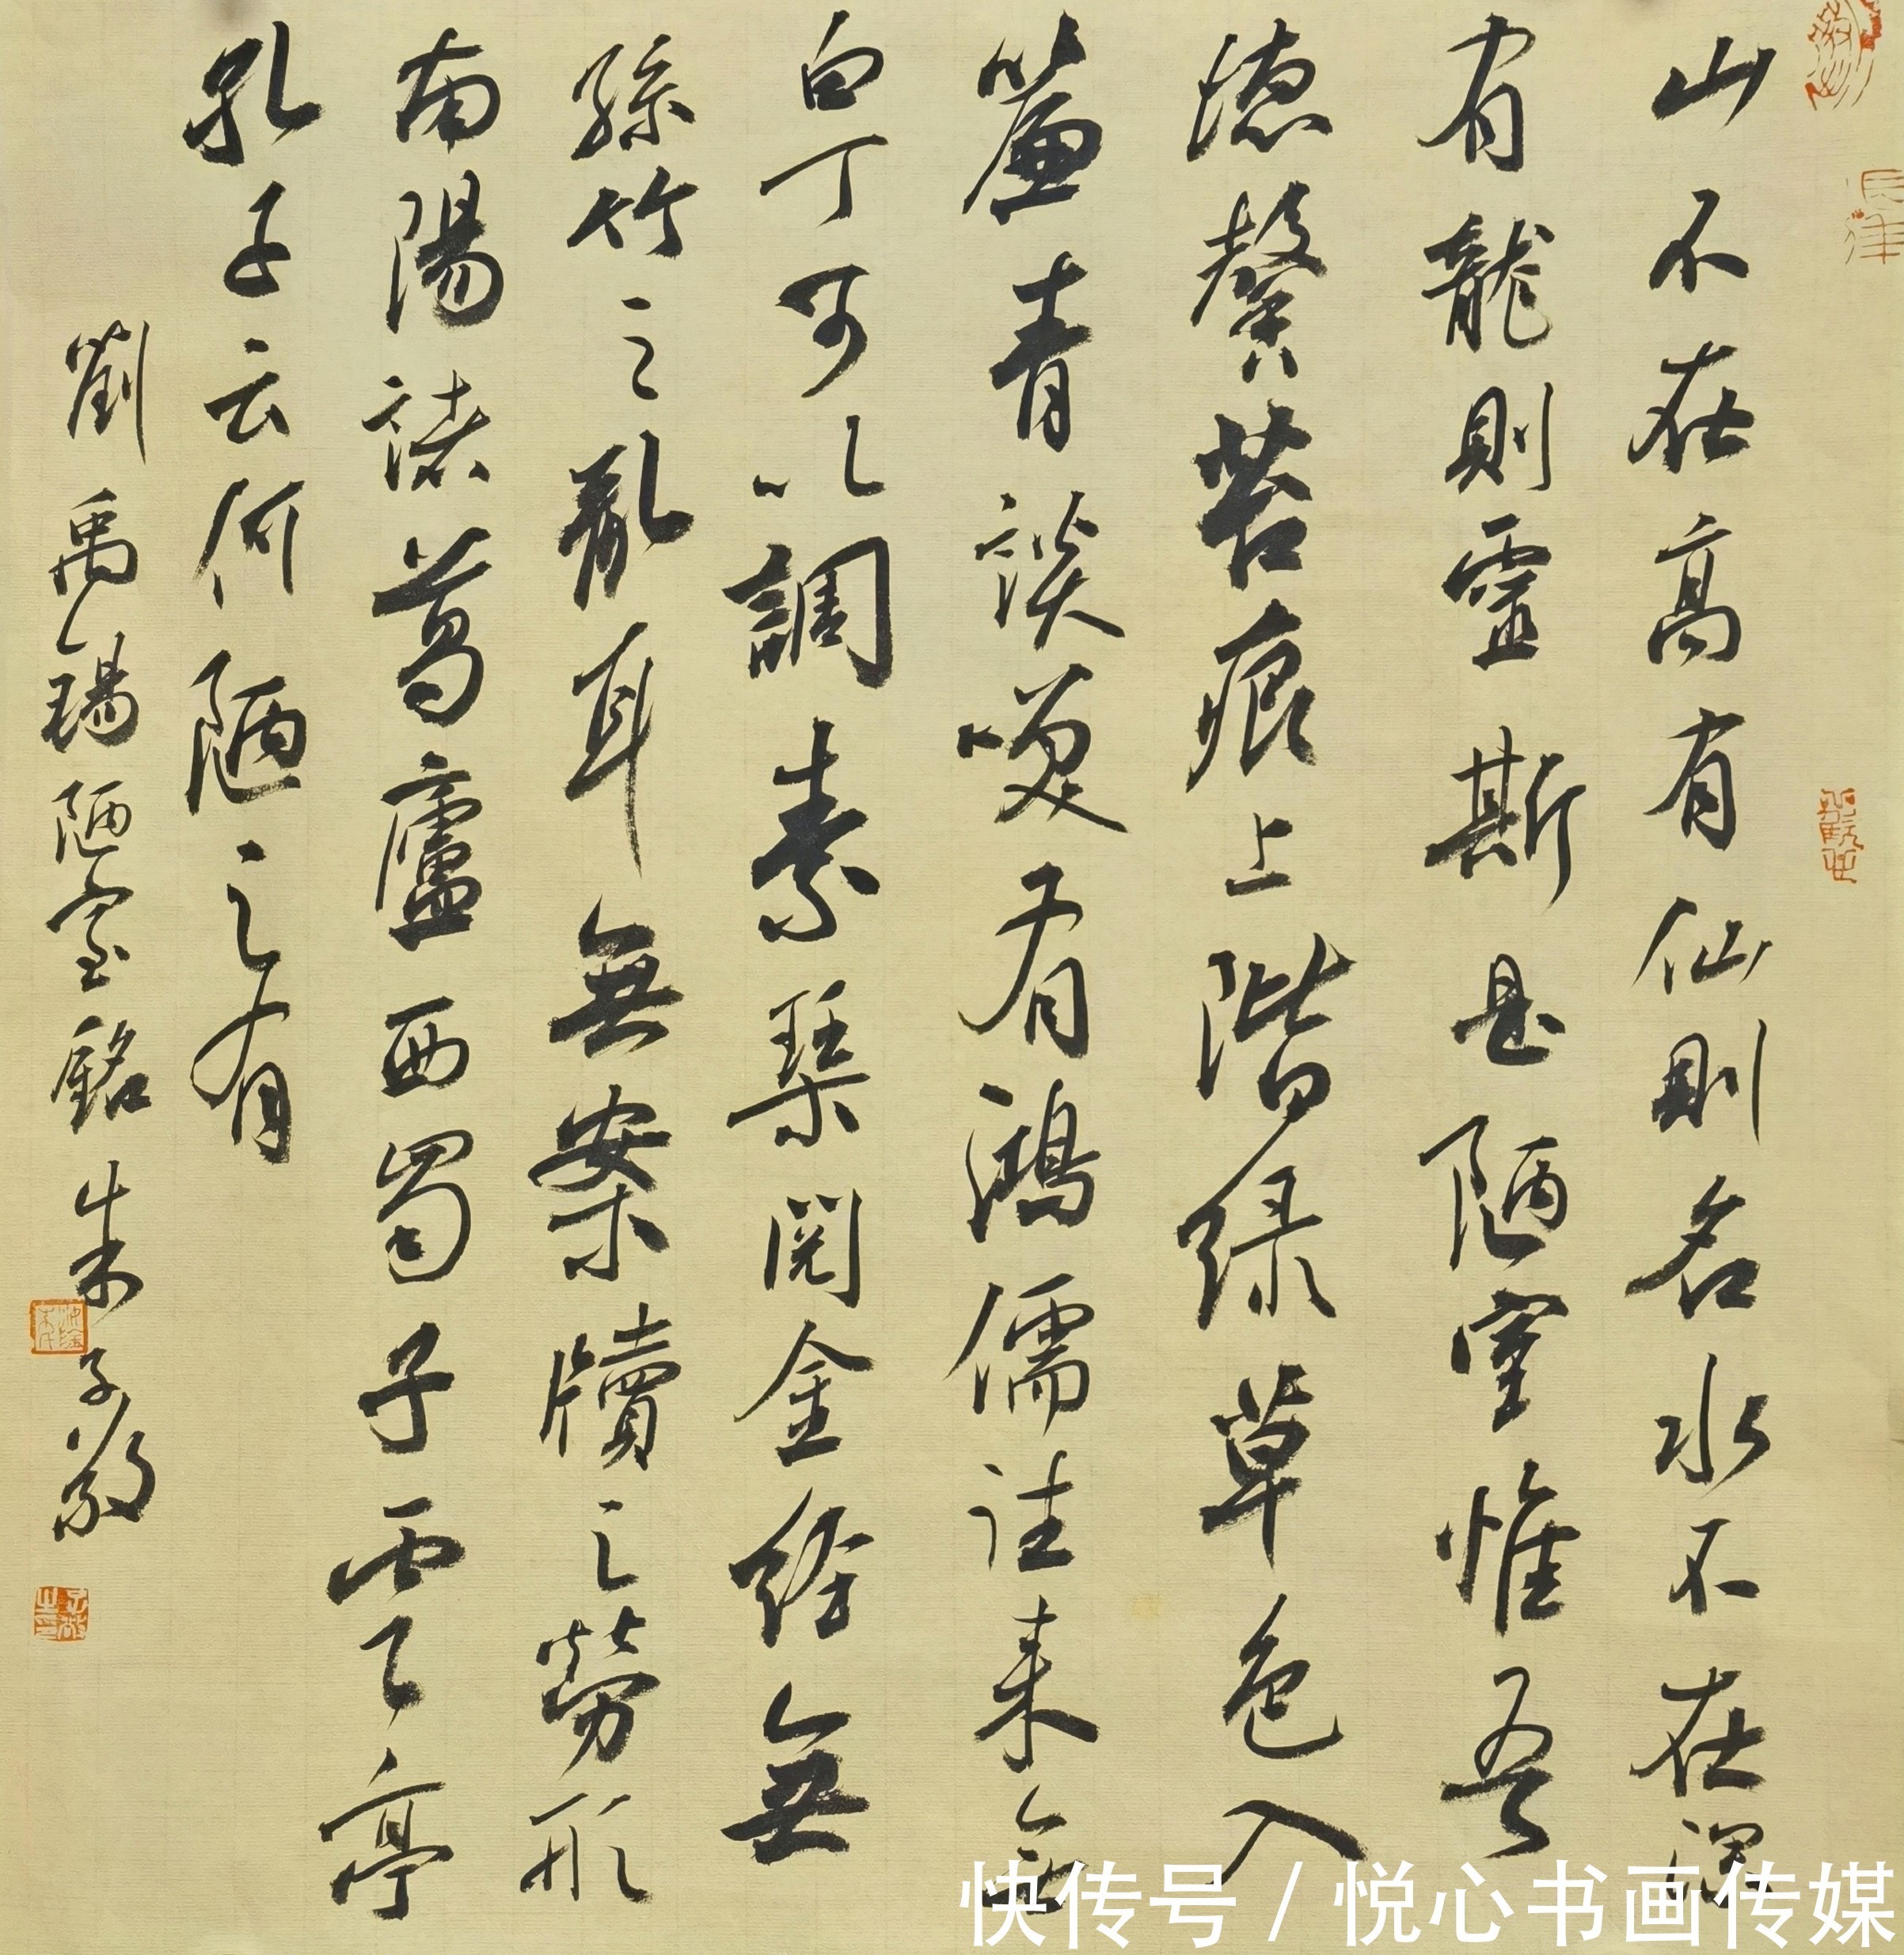 山不在高有仙則名水不在深
有龍則靈斯是陋室惟吾
德馨苔痕上階綠草色入
簾青談笑有鴻儒往来無
白丁可以調素琴閱金經無
絲竹之亂耳無案牘之勞形
南陽諸葛廬西蜀子雲亭
孔子云何陋之有
劉禹錫陋室銘 朱子敬
快传号 / 悦心书画传媒